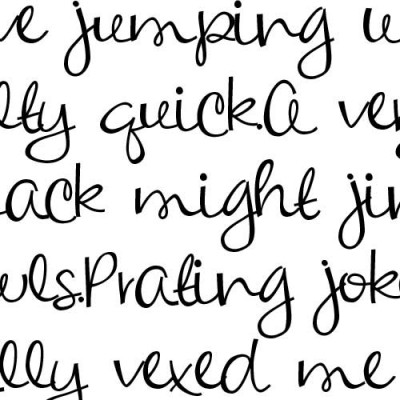 ve jumping w
lty quick.A ver
lack might jin
wls.Prating joke
lly vexed me